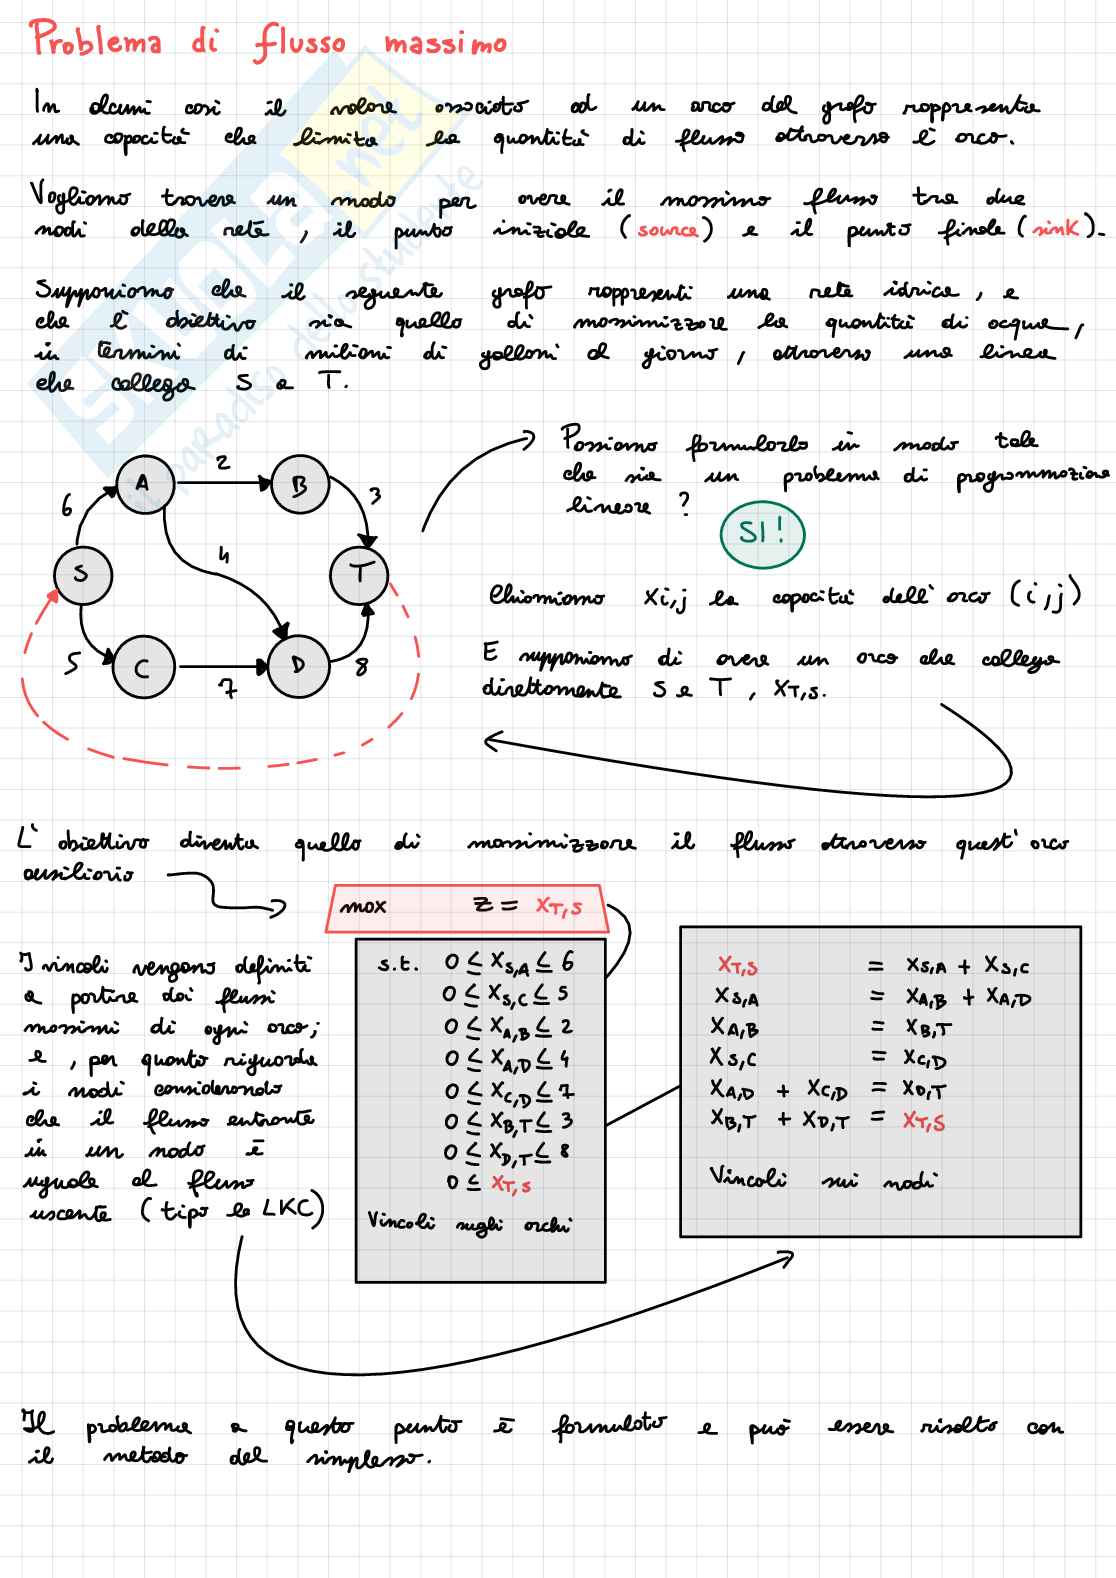 Problema di flusso massimo
In alcuni casi il valore associato ad un arco del grafo rappresenta
una capacità che limita la quantità di flusso attraverso l'arco.
Vogliamo trovare un modo per avere il massimo flusso tra due
nodi della rete, il punto iniziale (source) e il punto finale (sink).
Supponiamo che il seguente grafo rappresenti una rete idrica, e
che l'obiettivo sia quello di massimizzare la quantità di acqua,
in termini di milioni di galloni al giorno, attraverso una linea
che collega S a T.
Possiamo formularlo in modo tale
che sia un problema di programmazione
lineare?
SI!
A 2 B
6 3
4
S T
5 C 7 D 8
Chiamiamo Xi,j la capacità dell'arco (i,j)
E supponiamo di avere un arco che collega
direttamente S e T, XT,S.
L'obiettivo diventa quello di massimizzare il flusso attraverso quest'arco
ausiliario
max Z = XT,S
I vincoli vengono definiti
a partire dai flussi
massimi di ogni arco;
e, per quanto riguarda
i nodi considerando
che il flusso entrante
in un nodo è
uguale al flusso
uscente (tipo la LKC)
s.t. 0 ≤ XS,A ≤ 6
0 ≤ XS,C ≤ 5
0 ≤ XA,B ≤ 2
0 ≤ XA,D ≤ 4
0 ≤ XC,D ≤ 7
0 ≤ XB,T ≤ 3
0 ≤ XD,T ≤ 8
0 ≤ XT,S
Vincoli sugli archi
XT,S = XS,A + XS,C
XS,A = XA,B + XA,D
XA,B = XB,T
XS,C = XC,D
XA,D + XC,D = XD,T
XB,T + XD,T = XT,S
Vincoli sui nodi
Il problema a questo punto è formulato e può essere risolto con
il metodo del simplesso.
SKUOLA.net
il paradiso dello studente